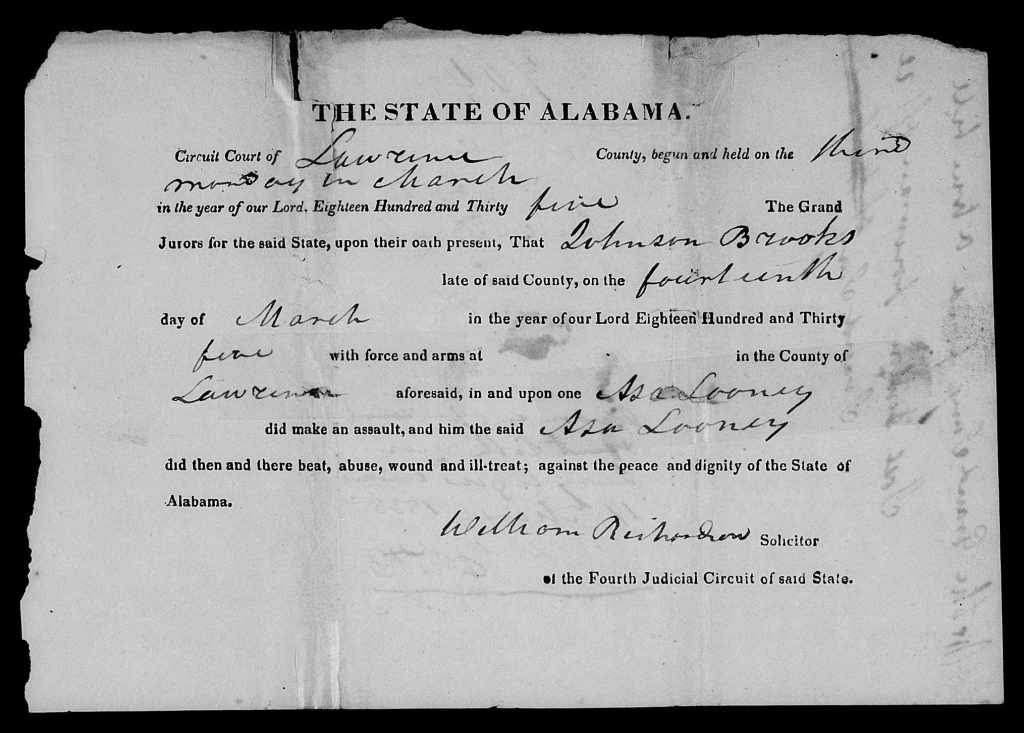 THE STATE OF ALABAMA.
Circuit Court of Lawrence County, begun and held on the third
monday in March
in the year of our Lord, Eighteen Hundred and Thirty five The Grand
Jurors for the said State, upon their oath present, That Johnson Brooks
late of said County, on the fourteenth
day of March in the year of our Lord Eighteen Hundred and Thirty
five with force and arms at in the County of
Lawrence aforesaid, in and upon one Asa Looney
did make an assault, and him the said Asa Looney
did then and there beat, abuse, wound and ill-treat; against the peace and dignity of the State of
Alabama.
William Richardson Solicitor
of the Fourth Judicial Circuit of said State.